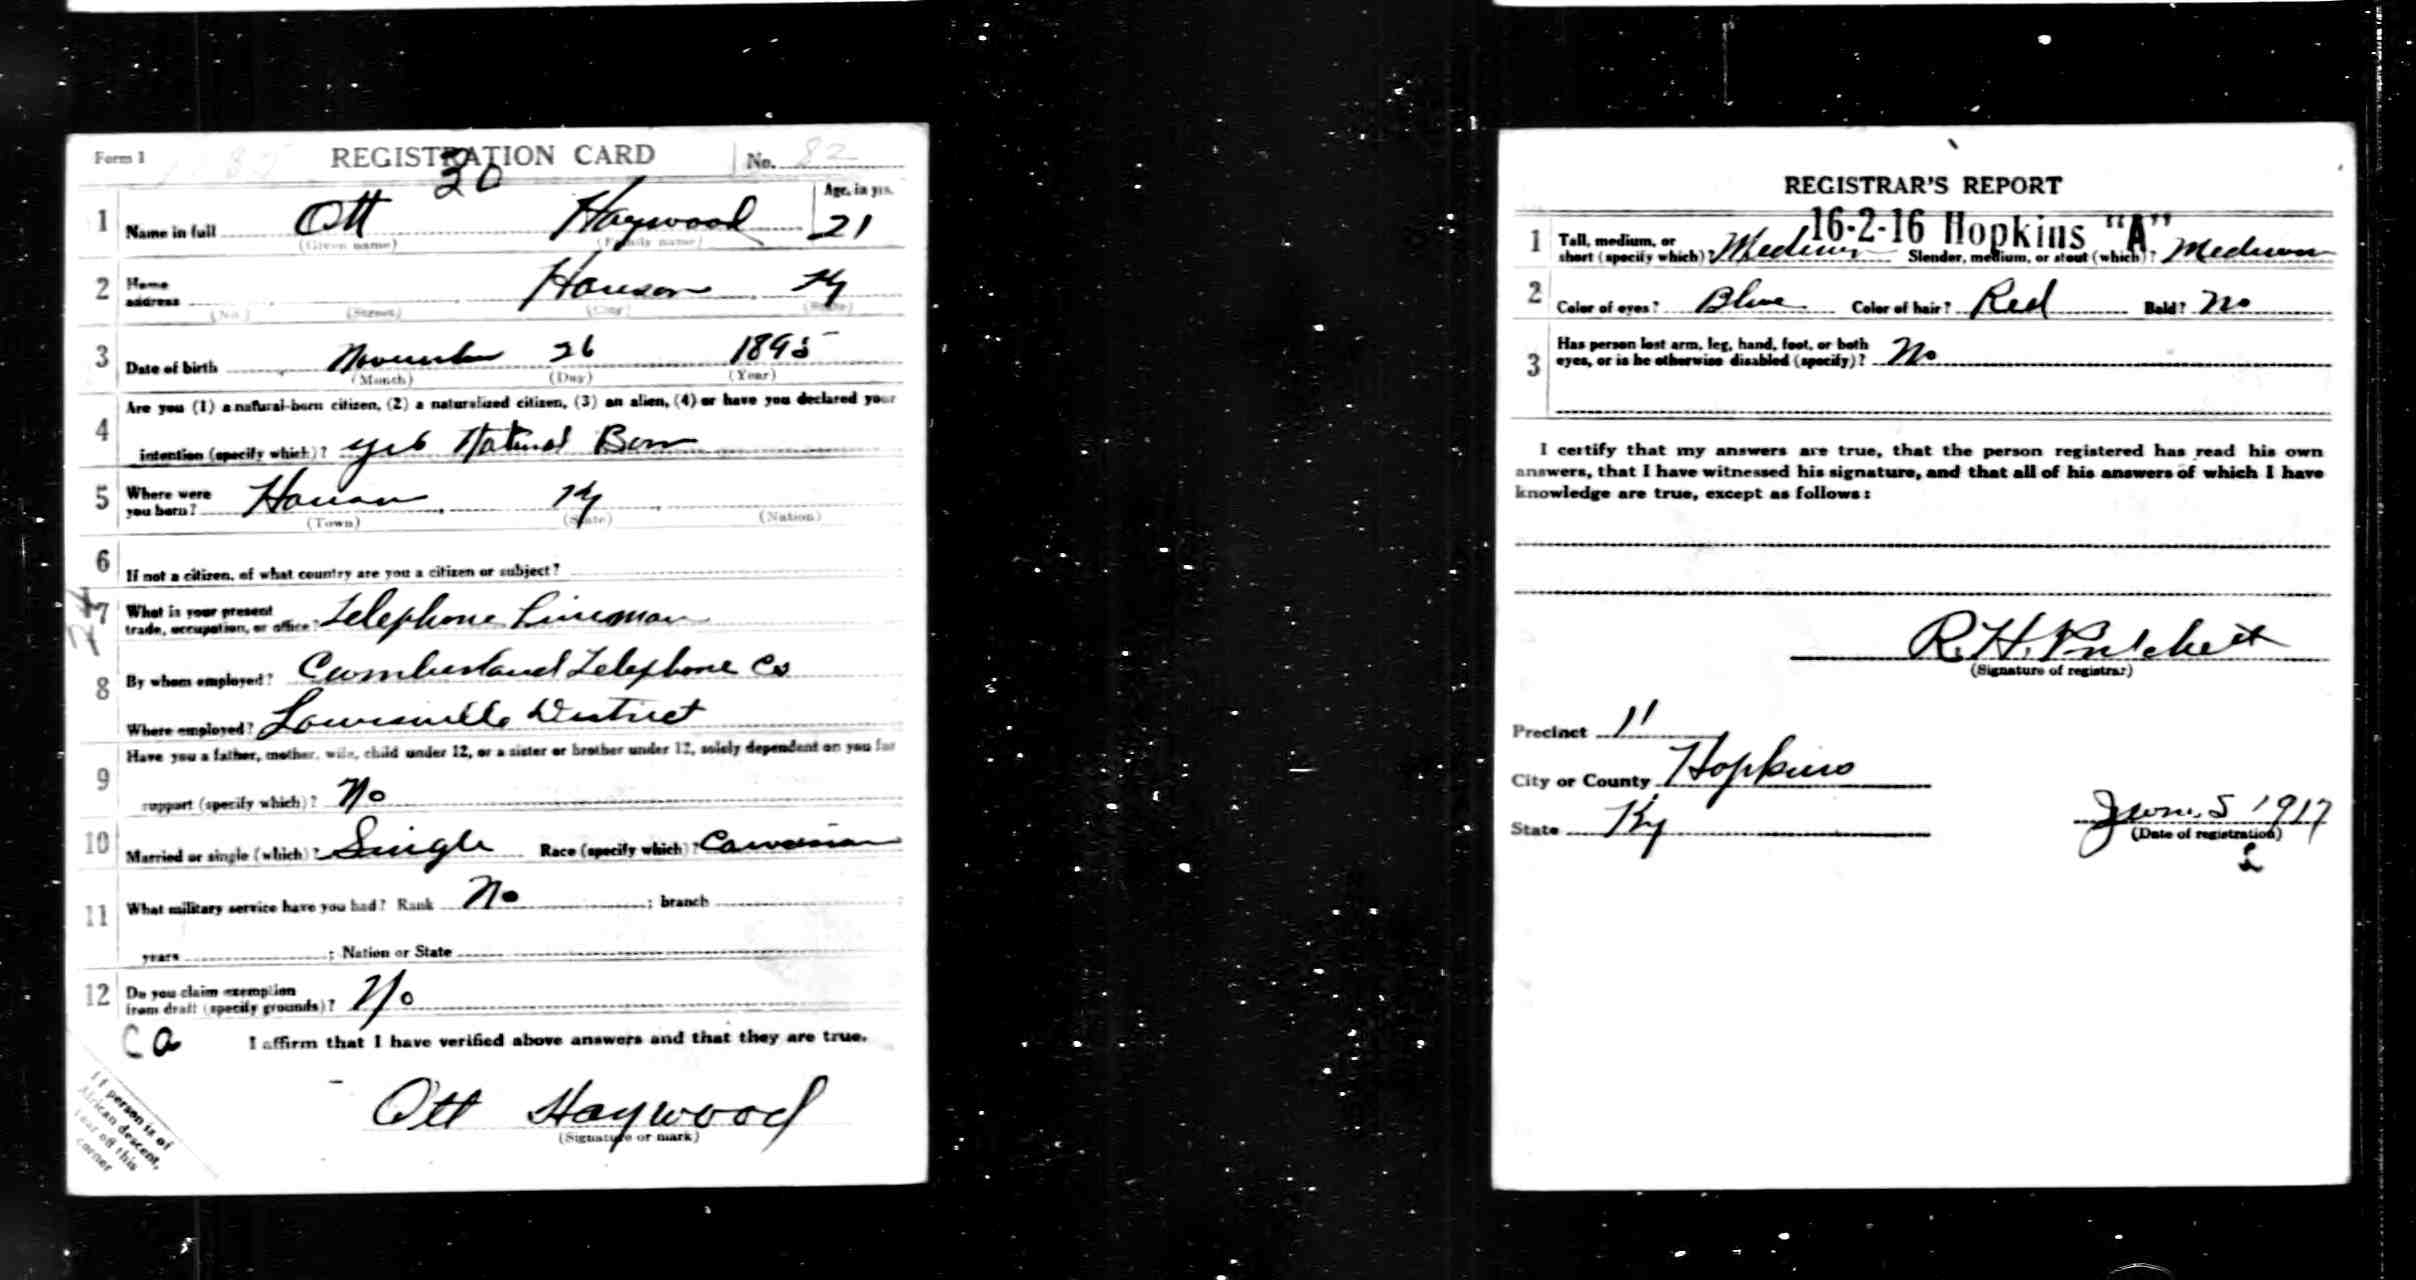 Form 1 REGISTRATION CARD No. 82
30
1 Name in full Ott Haywood Age, in yrs. 21
(Given name) (Family name)
2 Home address Hanson Ky
(No.) (Street) (City) (State)
3 Date of birth November 26 1895
(Month) (Day) (Year)
4 Are you (1) a natural-born citizen, (2) a naturalized citizen, (3) an alien, (4) or have you declared your
intention (specify which)? yes Natural Born
5 Where were you born? Hanson Ky
(Town) (State) (Nation)
6 If not a citizen, of what country are you a citizen or subject?
7 What is your present trade, occupation, or office? Telephone Lineman
8 By whom employed? Cumberland Telephone Co
Where employed? Louisville District
9 Have you a father, mother, wife, child under 12, or a sister or brother under 12, solely dependent on you for
support (specify which)? No
10 Married or single (which)? Single Race (specify which)? Caucasian
11 What military service have you had? Rank No ; branch
years ; Nation or State
12 Do you claim exemption from draft (specify grounds)? No
Ca I affirm that I have verified above answers and that they are true.
Ott Haywood
(Signature or mark)
If person is of
African descent,
tear off this
corner
REGISTRAR'S REPORT
16-2-16 Hopkins "A"
1 Tall, medium, or short (specify which)? Medium Slender, medium, or stout (which)? Medium
2 Color of eyes? Blue Color of hair? Red Bald? No
3 Has person lost arm, leg, hand, foot, or both
eyes, or is he otherwise disabled (specify)? No
I certify that my answers are true, that the person registered has read his own
answers, that I have witnessed his signature, and that all of his answers of which I have
knowledge are true, except as follows:
R. H. Pritchett
(Signature of registrar)
Precinct 11
City or County Hopkins
State Ky
June 5 1917
(Date of registration)